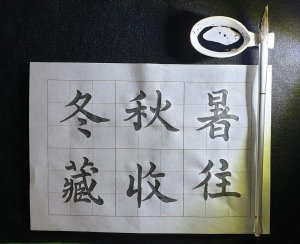 暑往
秋收
冬藏